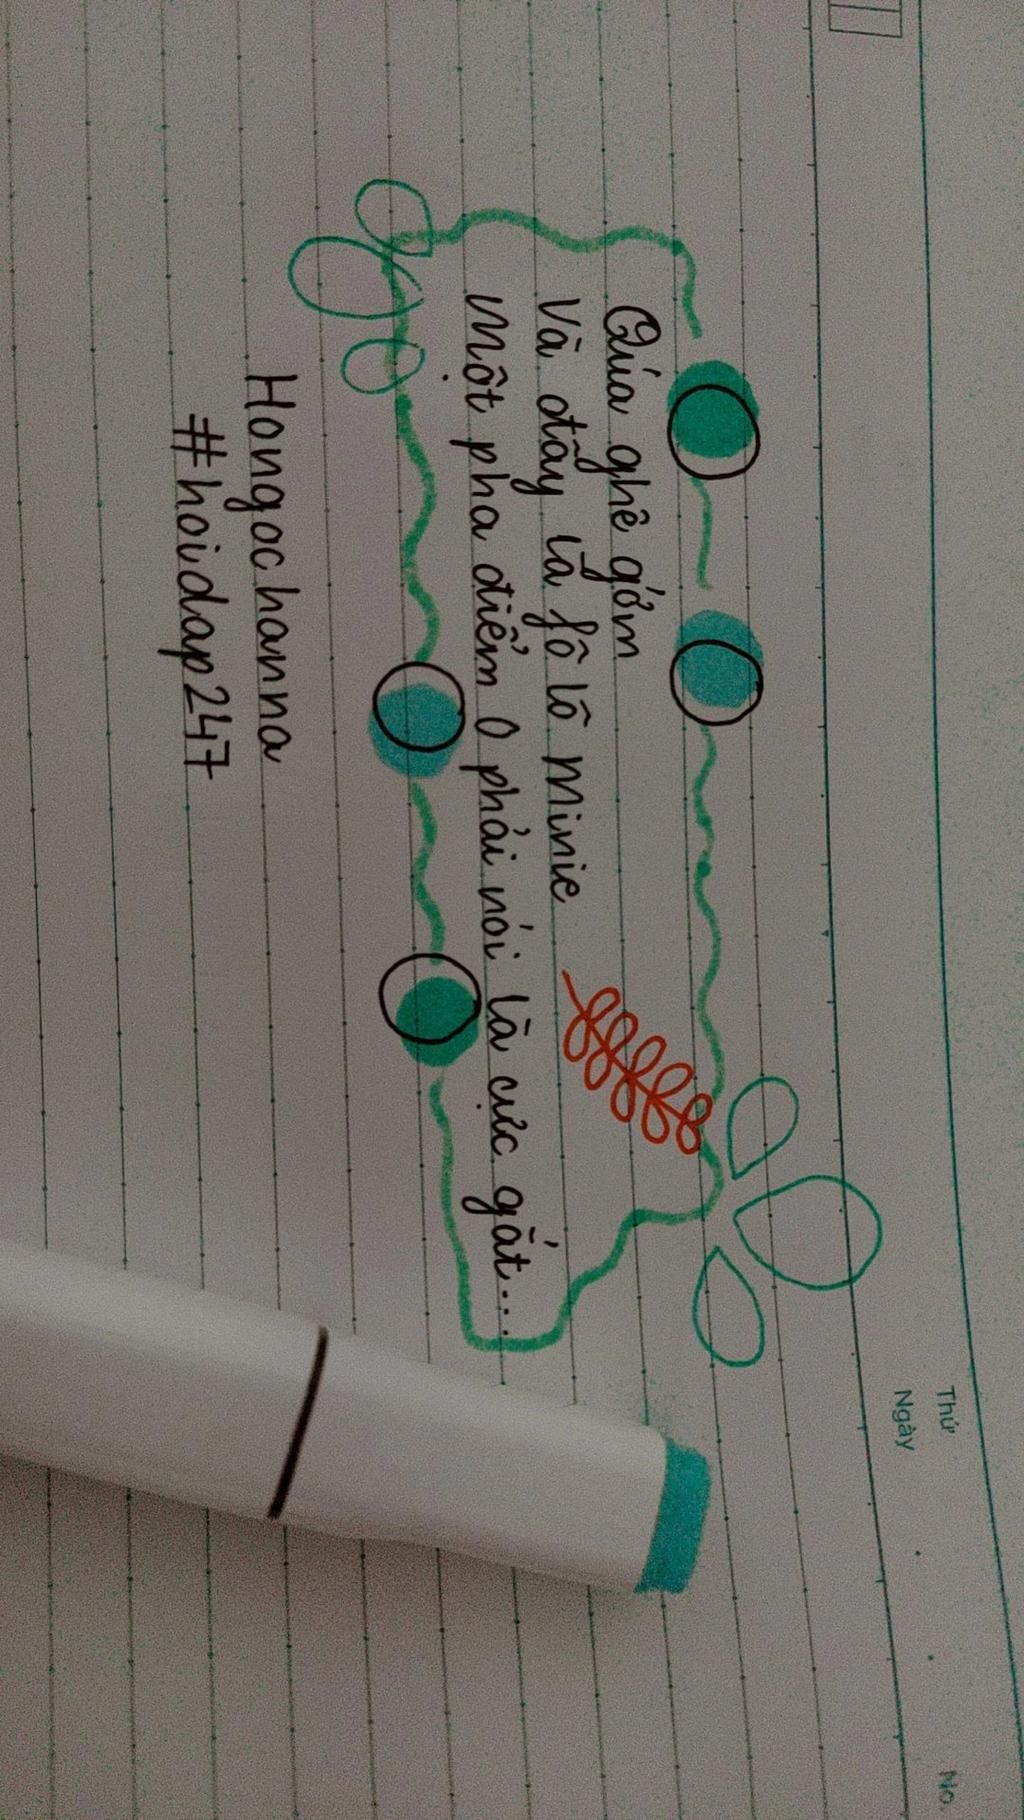 Thứ
Ngày
No
Qúa ghê gớm
Và đây là fô lô minie
Một pha điểm 0 phải nói là cực gắt...
Hangochanna
#hoidap247